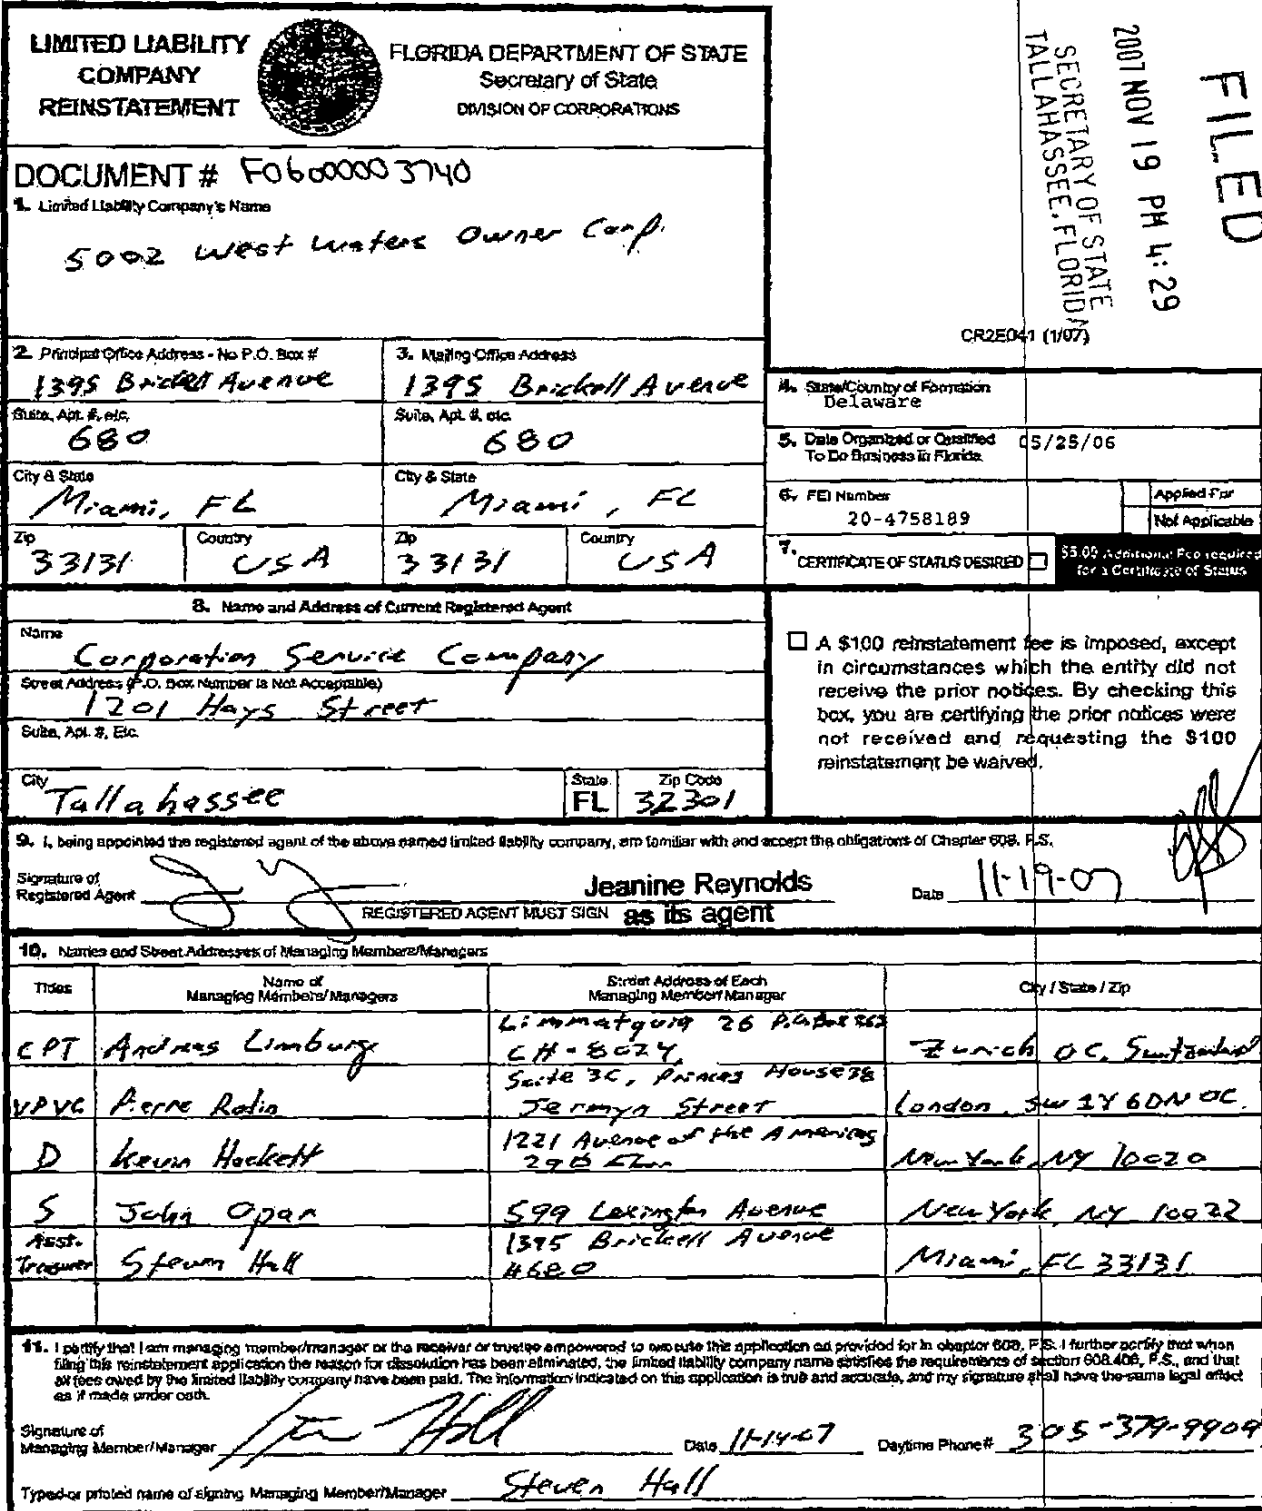 LIMITED LIABILITY
COMPANY
REINSTATEMENT
FLORIDA DEPARTMENT OF STATE
Secretary of State
DIVISION OF CORPORATIONS
FILED
2007 NOV 19 PM 4:29
SECRETARY OF STATE
TALLAHASSEE, FLORIDA
DOCUMENT # F06000003740
1. Limited Liability Company's Name
5002 West Waters Owner Corp.
CR2E041 (1/07)
2. Principal Office Address - No P.O. Box #
1395 Brickell Avenue
3. Mailing Office Address
1395 Brickell Avenue
Suite, Apt. #, etc.
680
Suite, Apt. #, etc.
680
City & State
Miami, FL
City & State
Miami, FL
Zip
33131
Country
USA
Zip
33131
Country
USA
4. State/Country of Formation
Delaware
5. Date Organized or Qualified
To Do Business in Florida
05/25/06
6. FEI Number
20-4758189
Applied For
Not Applicable
7. CERTIFICATE OF STATUS DESIRED
$5.00 Additional Fee required
for a Certificate of Status
8. Name and Address of Current Registered Agent
Name
Corporation Service Company
Street Address (P.O. Box Number is Not Acceptable)
1201 Hays Street
Suite, Apt. #, Etc.
City
Tallahassee
State
FL
Zip Code
32301
A $100 reinstatement fee is imposed, except
in circumstances which the entity did not
receive the prior notices. By checking this
box, you are certifying the prior notices were
not received and requesting the $100
reinstatement be waived.
9. I, being appointed the registered agent of the above named limited liability company, am familiar with and accept the obligations of Chapter 608, F.S.
Signature of
Registered Agent
REGISTERED AGENT MUST SIGN
Jeanine Reynolds
as its agent
Date 11-19-07
10. Names and Street Addresses of Managing Members/Managers
Titles
Name of
Managing Members/Managers
Street Address of Each
Managing Member/Manager
City / State / Zip
CPT Andreas Limburg
26 P.O. Box
CH-8024,
Zurich OC, Switzerland
VPVC Pierre Rolin
Suite 3C, Princes House 38
Jermyn Street
London, SW 1Y 6DN OC.
D Kevin Hackett
1221 Avenue of the Americas
New York, NY 10020
S John Opar
599 Lexington Avenue
New York, NY 10022
Asst.
Treasurer Steven Hall
1395 Brickell Avenue
#680
Miami, FL 33131
11. I certify that I am managing member/manager or the receiver or trustee empowered to execute this application as provided for in chapter 608, F.S. I further certify that when
filing this reinstatement application the reason for dissolution has been eliminated, the limited liability company name satisfies the requirements of section 608.406, F.S., and that
all fees owed by the limited liability company have been paid. The information indicated on this application is true and accurate, and my signature shall have the same legal effect
as if made under oath.
Signature of
Managing Member/Manager
Date 11-14-07
Daytime Phone # 305-379-9909
Typed or printed name of signing Managing Member/Manager Steven Hall